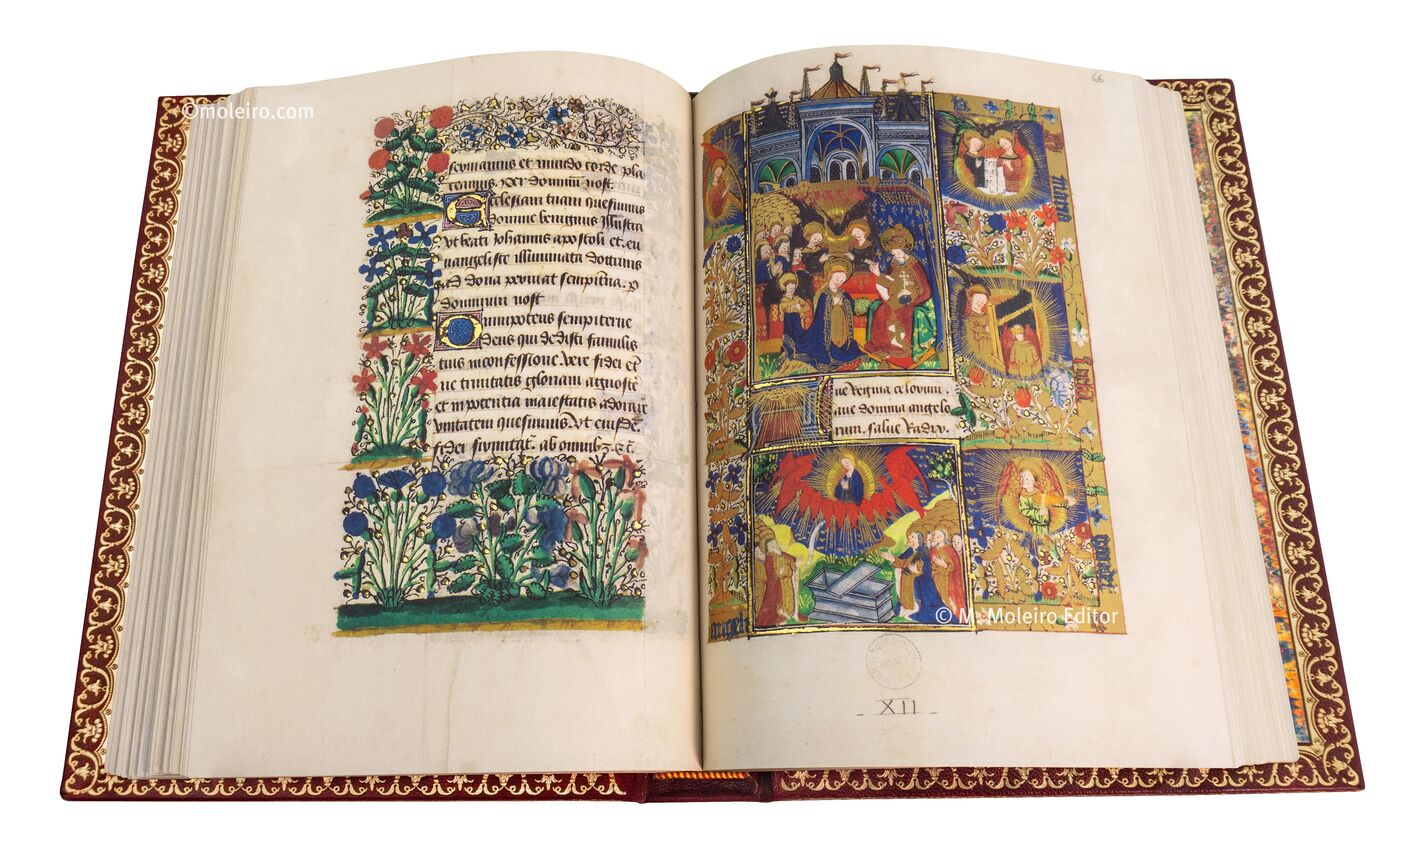 ©moleiro.com
seruiamus et mundo corde pla
ceamus. per dominum nost.
Ecclesiam tuam quesumus
domine benignus illustra
vt beati Johannis apostoli et eu
uangeliste illuminata doctrinis
ad dona proueniat sempiterna. p
dominum nost
Omnipotens sempiterne
deus qui dedisti famulis
tuis in confessione vere fidei et
ne trinitatis gloriam agnosce
et in potentia maiestatis adorare
vnitatem quesumus. vt eiusdem
fidei firmitate ab omnib3
66
aue Regina celorum.
aue domina angelo
rum. salue Radix.
© M. Moleiro Editor
XII